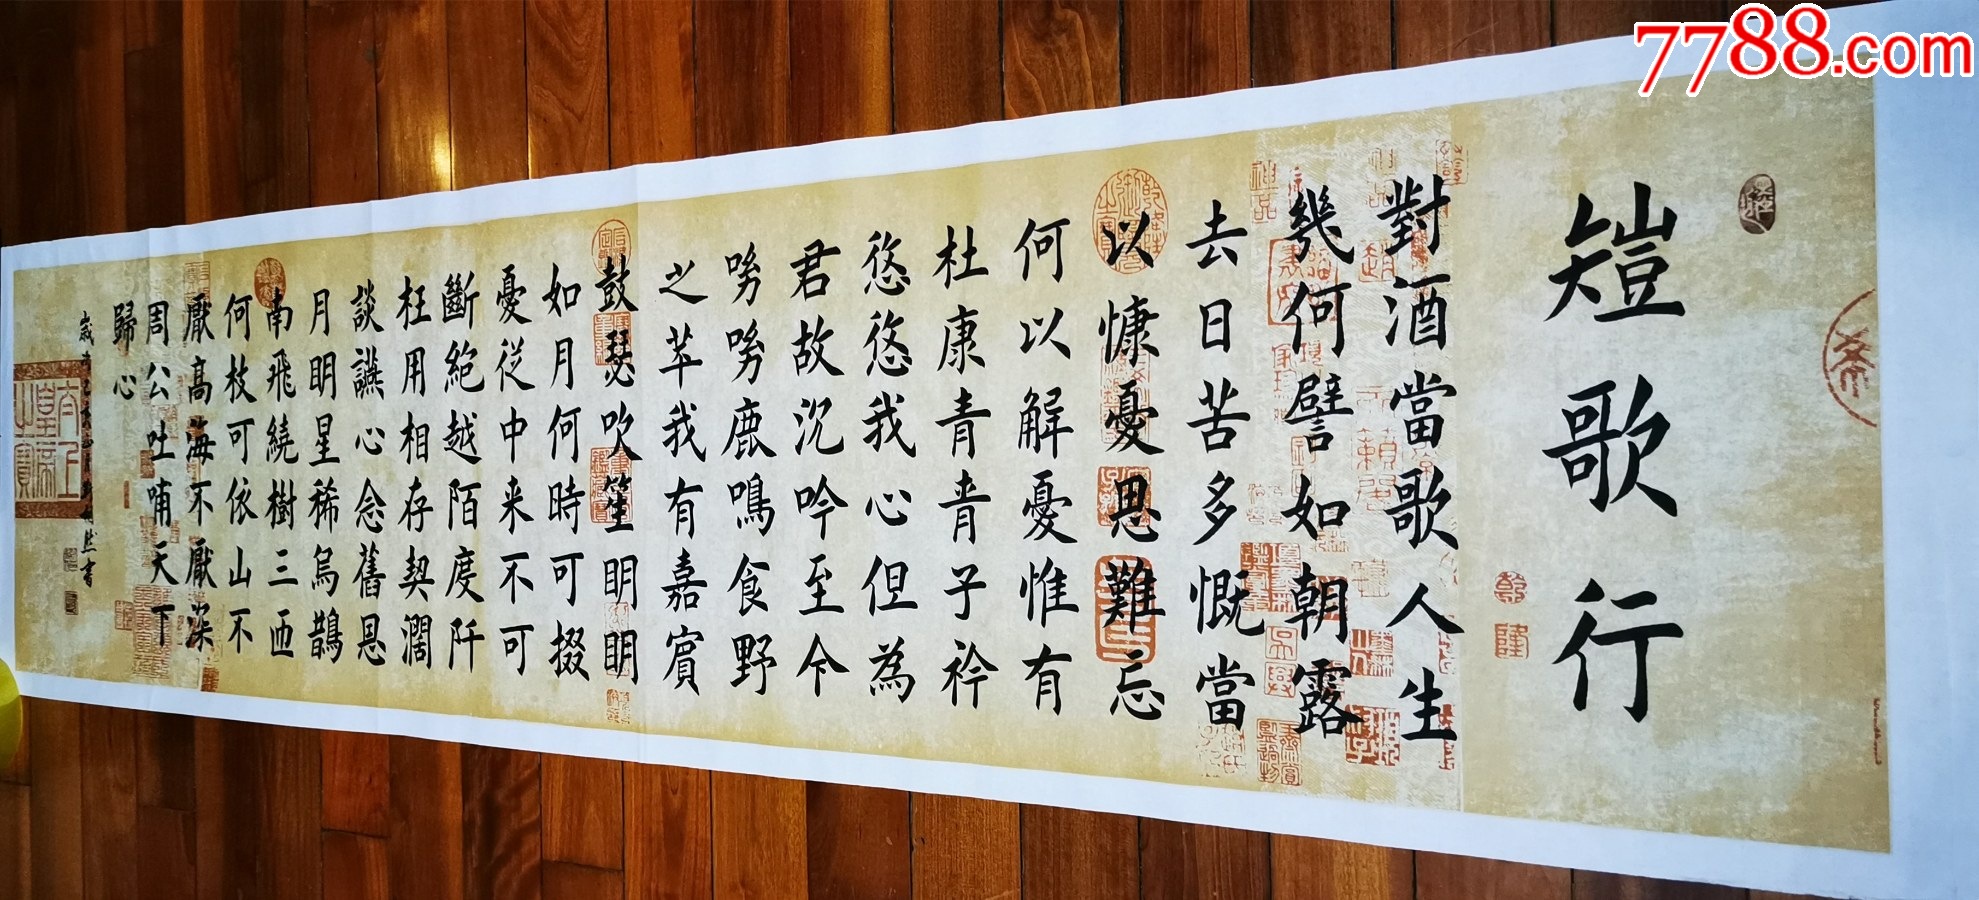 7788.com
短歌行
對酒當歌人生
幾何譬如朝露
去日苦多慨當
以慷憂思難忘
何以解憂惟有
杜康青青子衿
悠悠我心但為
君故沉吟至今
呦呦鹿鳴食野
之苹我有嘉賓
鼓瑟吹笙明明
如月何時可掇
憂從中来不可
斷絕越陌度阡
枉用相存契濶
談讌心念舊恩
月明星稀烏鵲
南飛繞樹三匝
何枝可依山不
厭高海不厭深
周公吐哺天下
歸心
乾
隆
太上皇帝之寶